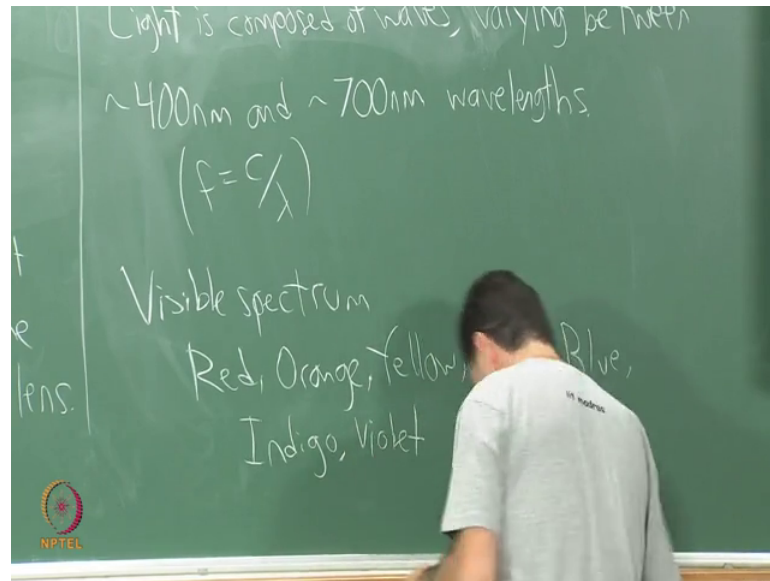 Light is composed of waves, varying between
~400nm and ~700nm wavelengths.
(f = c/λ)
Visible spectrum
Red, Orange, Yellow, Blue,
Indigo, Violet
lens.
iit madras
NPTEL